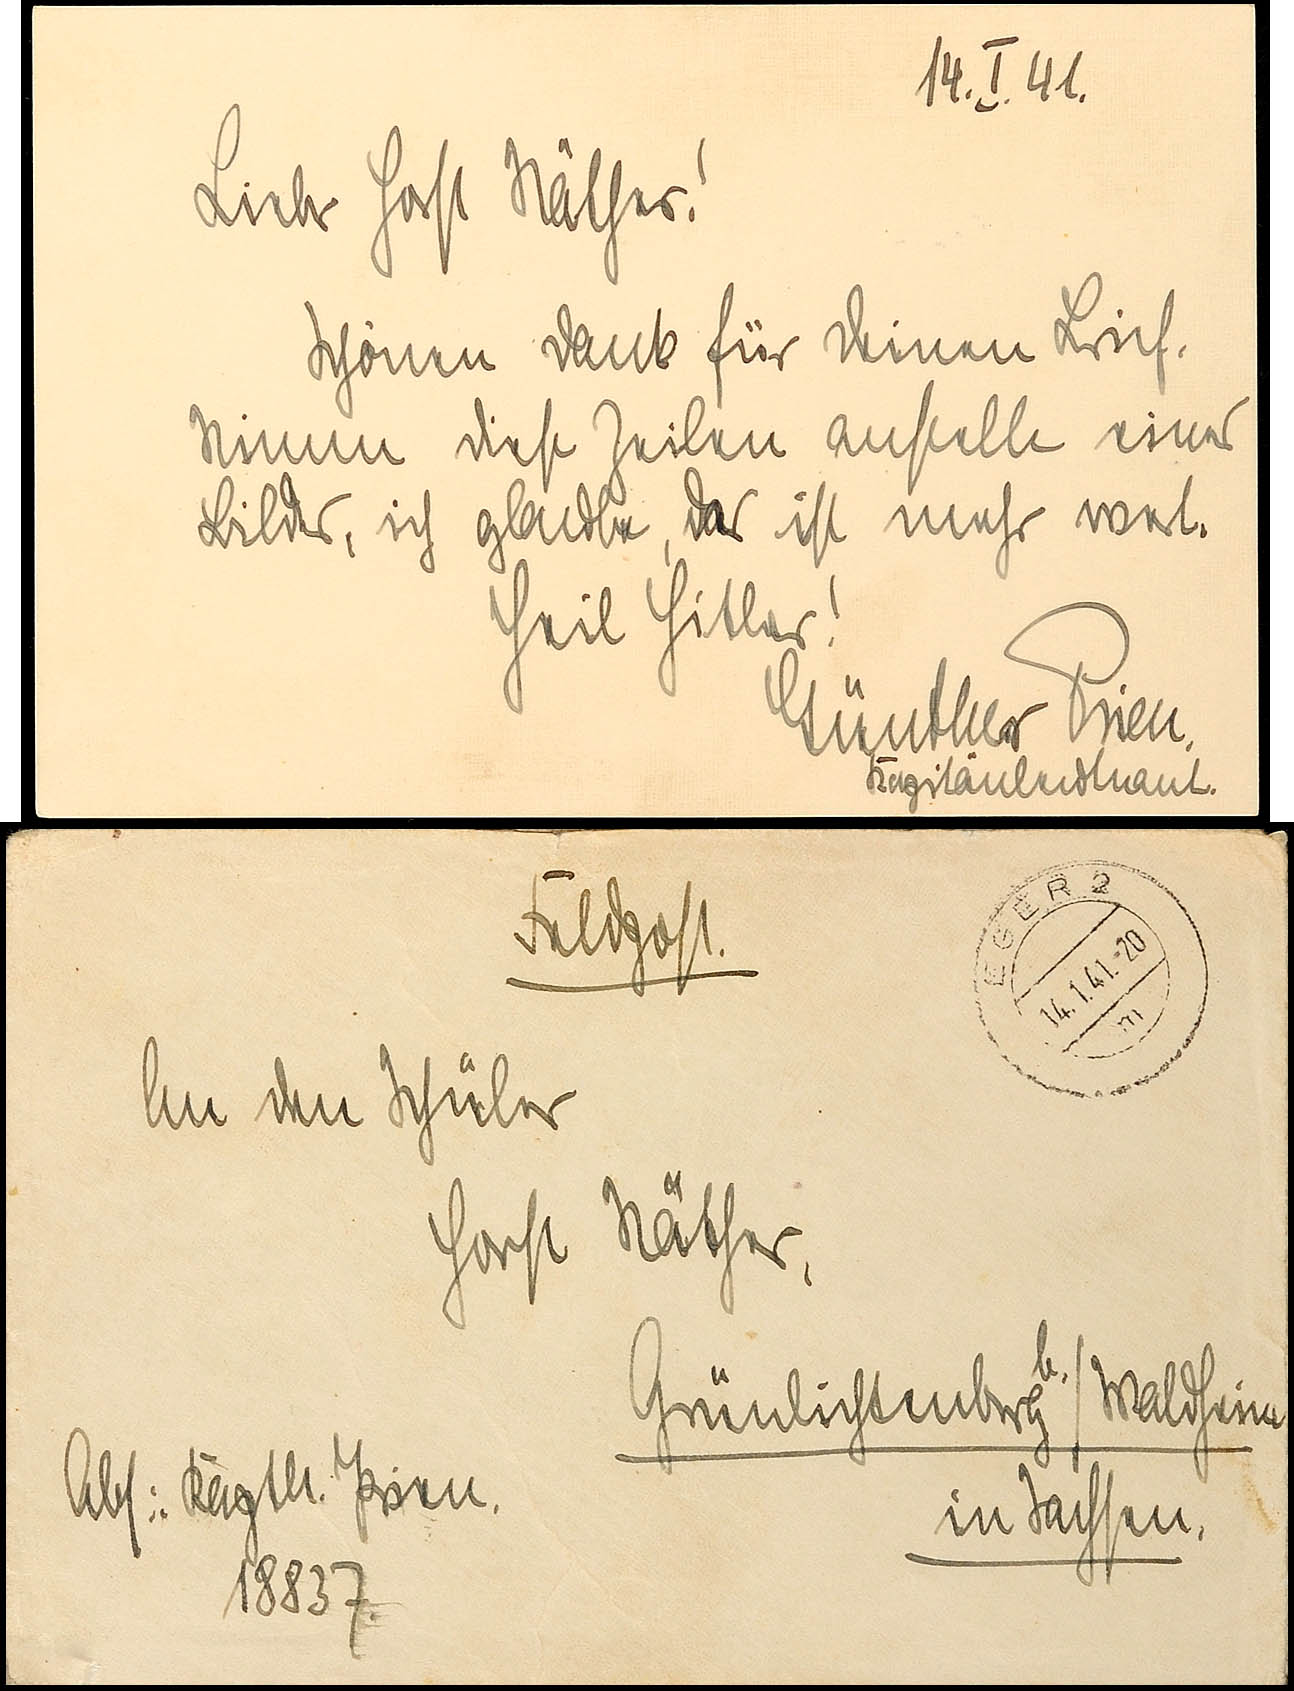 14. I. 41.
Lieber Horst Näther!
Schönen Dank für Deinen Brief.
Nimm diese Zeilen anstelle eines
Bildes, ich glaube, das ist mehr wert.
Heil Hitler!
Günther Prien.
Kapitänleutnant.
Feldpost.
EGER 2
14.1.41.-20
m
An den Schüler
Horst Näther,
Grünlichtenberg b./Waldheim
in Sachsen.
Abs.: Kaptlt. Prien.
18837.